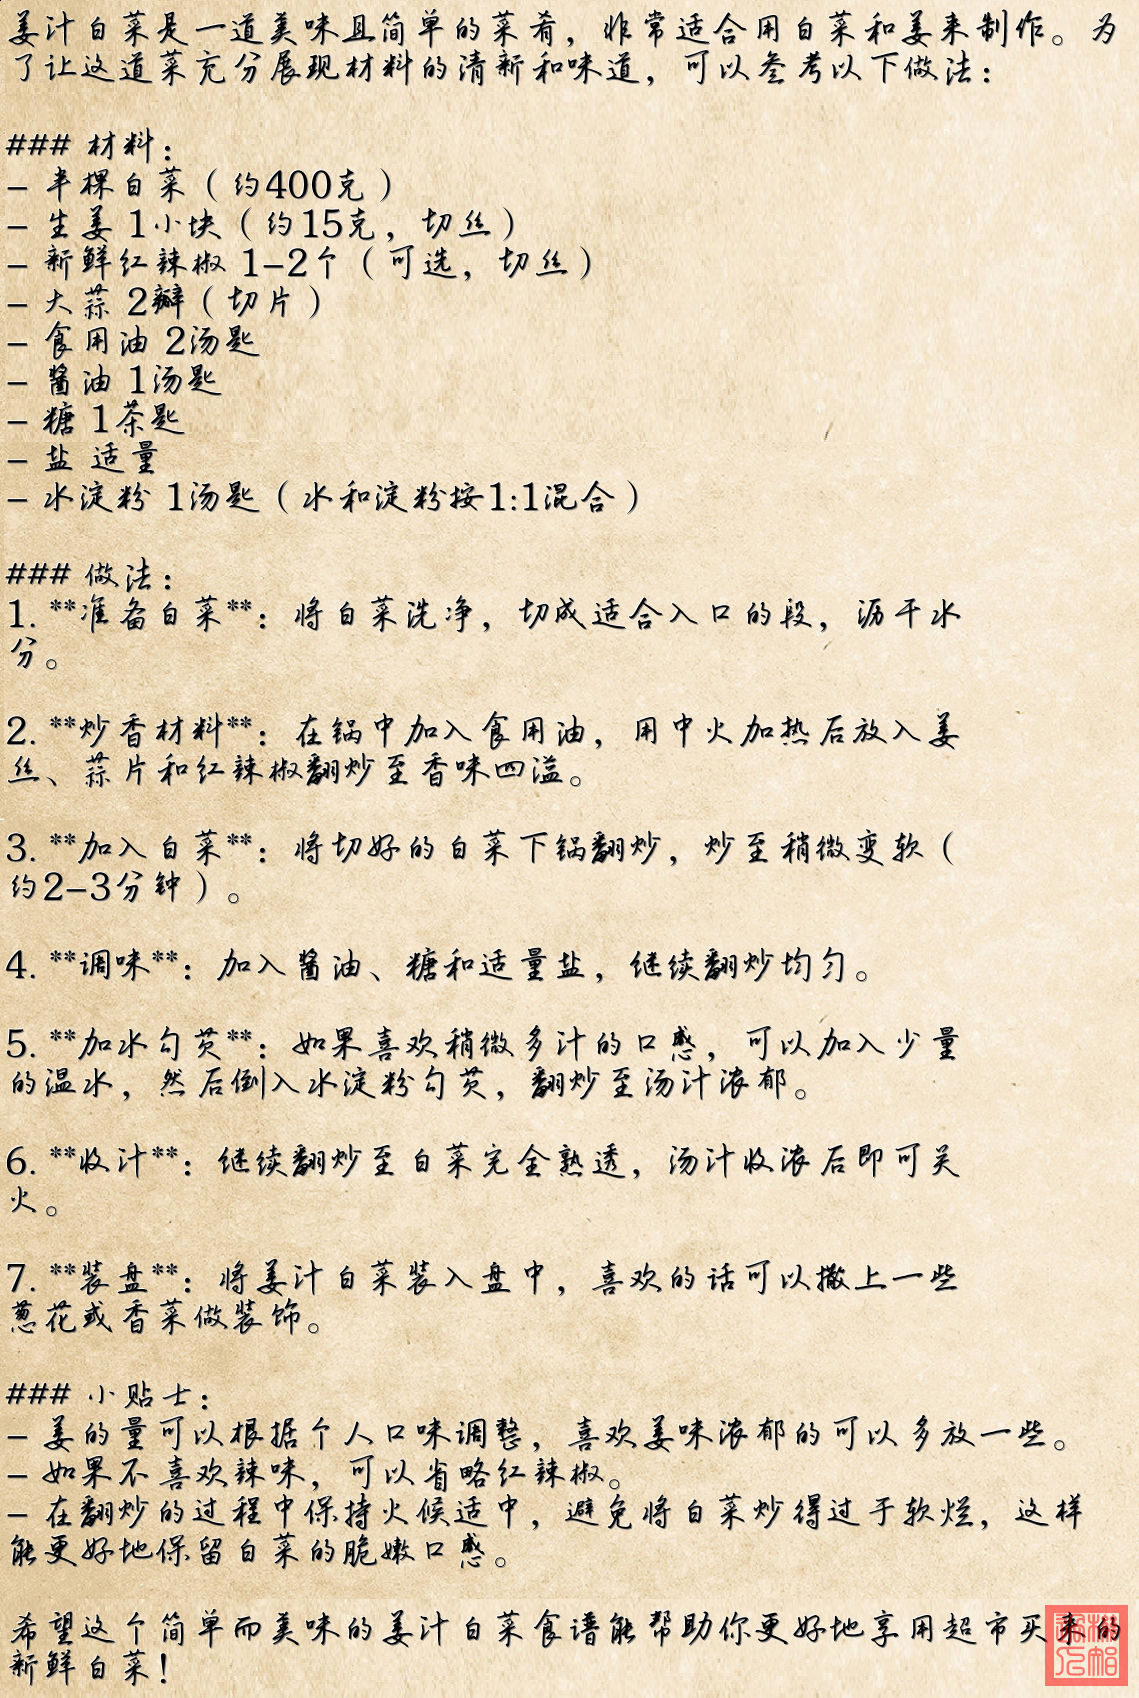 姜汁白菜是一道美味且简单的菜肴，非常适合用白菜和姜来制作。为
了让这道菜充分展现材料的清新和味道，可以参考以下做法：
### 材料：
- 半棵白菜（约400克）
- 生姜 1小块（约15克，切丝）
- 新鲜红辣椒 1-2个（可选，切丝）
- 大蒜 2瓣（切片）
- 食用油 2汤匙
- 酱油 1汤匙
- 糖 1茶匙
- 盐 适量
- 水淀粉 1汤匙（水和淀粉按1:1混合）
### 做法：
1. **准备白菜**：将白菜洗净，切成适合入口的段，沥干水
分。
2. **炒香材料**：在锅中加入食用油，用中火加热后放入姜
丝、蒜片和红辣椒翻炒至香味四溢。
3. **加入白菜**：将切好的白菜下锅翻炒，炒至稍微变软（
约2-3分钟）。
4. **调味**：加入酱油、糖和适量盐，继续翻炒均匀。
5. **加水勾芡**：如果喜欢稍微多汁的口感，可以加入少量
的温水，然后倒入水淀粉勾芡，翻炒至汤汁浓郁。
6. **收汁**：继续翻炒至白菜完全熟透，汤汁收浓后即可关
火。
7. **装盘**：将姜汁白菜装入盘中，喜欢的话可以撒上一些
葱花或香菜做装饰。
### 小贴士：
- 姜的量可以根据个人口味调整，喜欢姜味浓郁的可以多放一些。
- 如果不喜欢辣味，可以省略红辣椒。
- 在翻炒的过程中保持火候适中，避免将白菜炒得过于软烂，这样
能更好地保留白菜的脆嫩口感。
希望这个简单而美味的姜汁白菜食谱能帮助你更好地享用超市买来的
新鲜白菜！